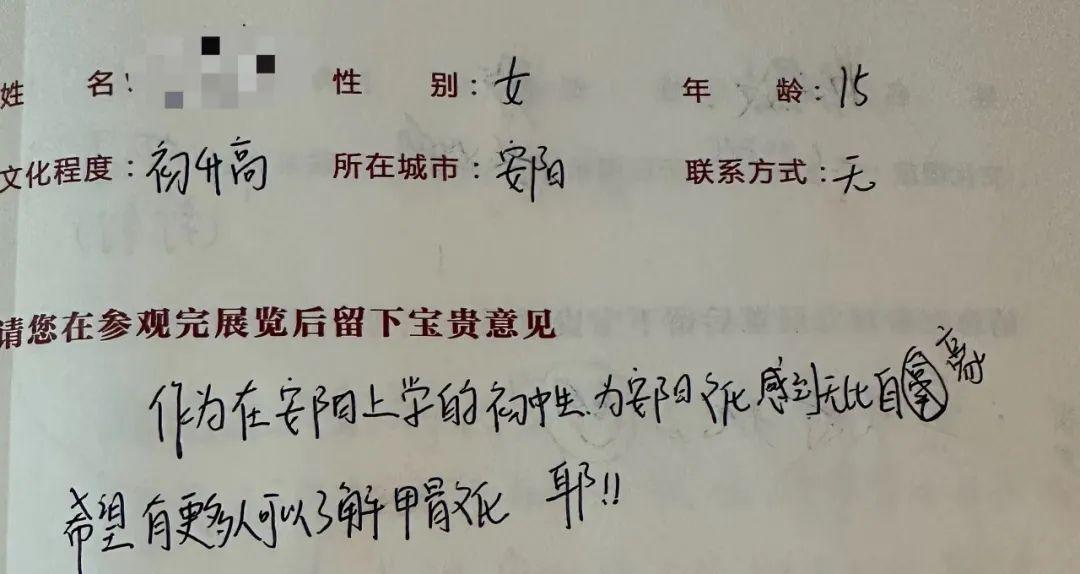 姓 名: 性 别:女 年 龄:15
文化程度:初升高 所在城市:安阳 联系方式:无
请您在参观完展览后留下宝贵意见
作为在安阳上学的初中生.为安阳文化感到无比自豪
希望有更多人可以了解甲骨文化 耶!!